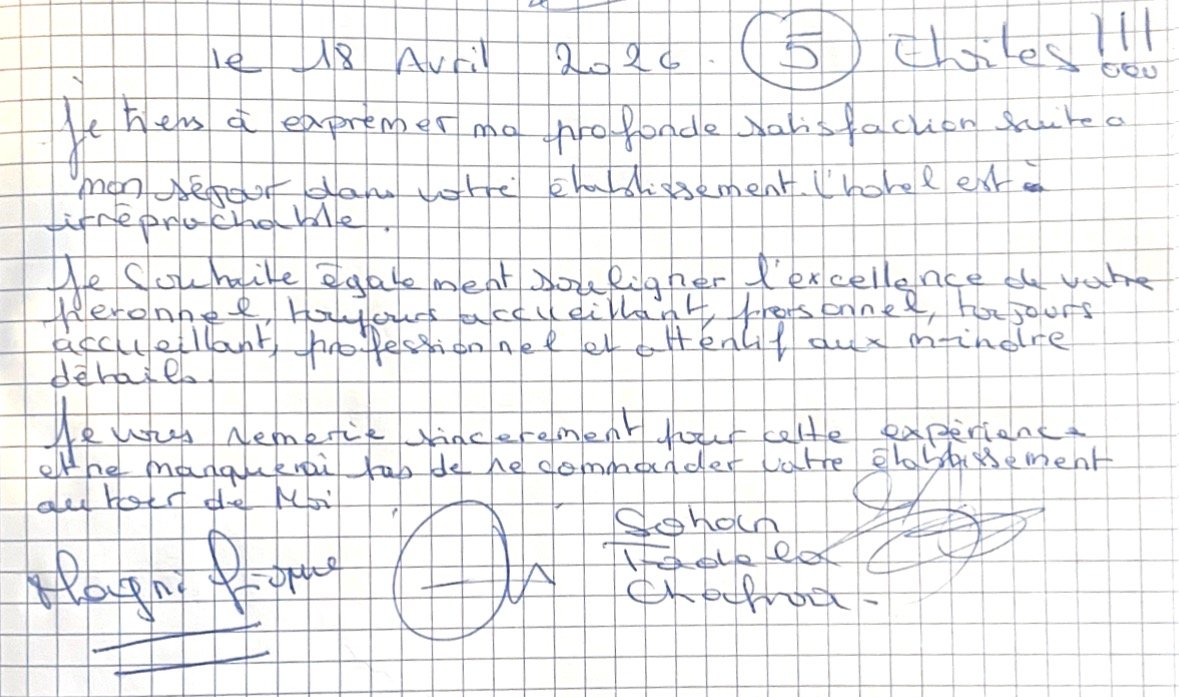 le 18 Avril 2026. 5 Etoiles !!!
Je tiens à exprèmer ma profonde satisfaction suite a
mon séjour dans votre établissement. l'hotel est à
irréprochable.
Je Souhaite égale ment souligner l'excellence de votre
peronnel, toujours accueillant, personnel, toujours
accueillant, professionnel et attentif aux moindre
détails.
Je vous remerie sincerement pour cette expérience
et ne manquerai pas de recommander votre établissement
autour de Moi
Magnifique
Sohan